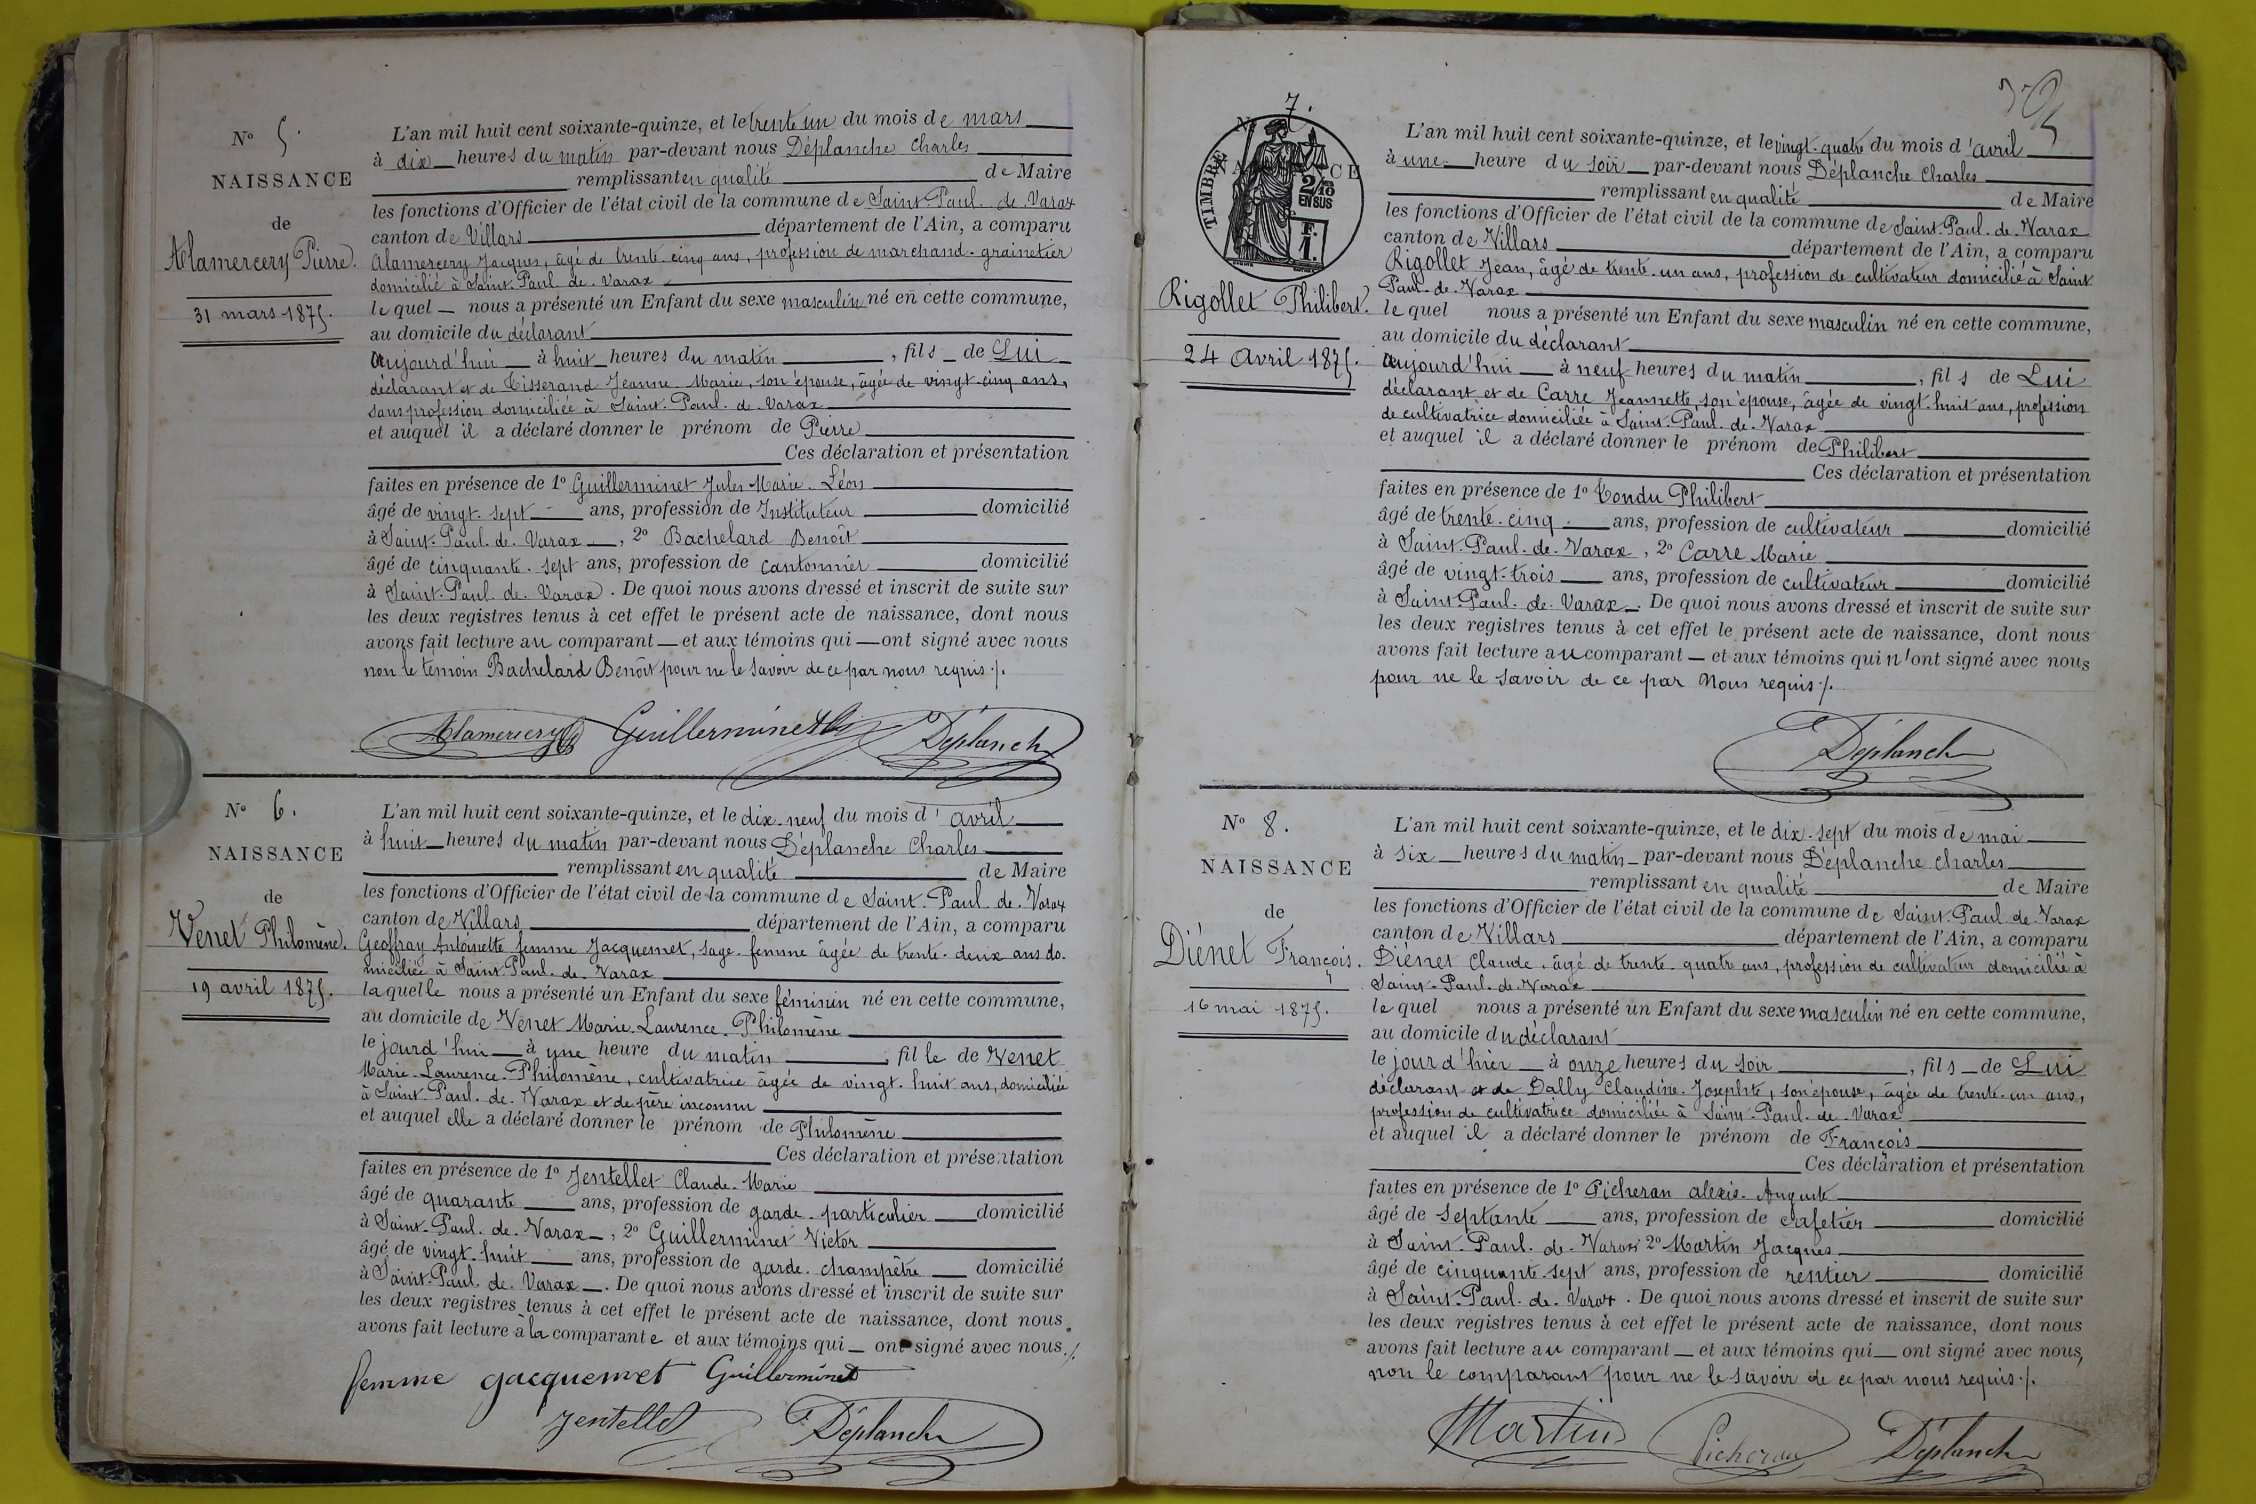 N° 5.
NAISSANCE
de
Alamercery Pierre.
31 mars 1875.
L'an mil huit cent soixante-quinze, et le trente un du mois de mars
à dix heures du matin par-devant nous Déplanche Charles
remplissant en qualité de Maire
les fonctions d'Officier de l'état civil de la commune de Saint-Paul-de-Varax
canton de Villars département de l'Ain, a comparu
Alamercery Jacques, âgé de trente-cinq ans, profession de marchand-grainetier
domicilié à Saint-Paul-de-Varax
le quel nous a présenté un Enfant du sexe masculin né en cette commune,
au domicile du déclarant
aujourd'hui à huit heures du matin, fils de Lui
déclarant et de Tisserand Jeanne-Marie, son épouse, âgée de vingt-cinq ans,
sans profession domiciliée à Saint-Paul-de-Varax
et auquel il a déclaré donner le prénom de Pierre
Ces déclaration et présentation
faites en présence de 1° Guillerminet Jules-Marie-Léon
âgé de vingt-sept ans, profession de Instituteur domicilié
à Saint-Paul-de-Varax, 2° Bachelard Benoît
âgé de cinquante-sept ans, profession de cantonnier domicilié
à Saint-Paul-de-Varax. De quoi nous avons dressé et inscrit de suite sur
les deux registres tenus à cet effet le présent acte de naissance, dont nous
avons fait lecture au comparant et aux témoins qui ont signé avec nous
non le témoin Bachelard Benoît pour ne le savoir de ce par nous requis ./.
Alamercery Guillerminet Déplanche
N° 6.
NAISSANCE
de
Venet Philomène.
19 avril 1875.
L'an mil huit cent soixante-quinze, et le dix-neuf du mois d'avril
à huit heures du matin par-devant nous Déplanche Charles
remplissant en qualité de Maire
les fonctions d'Officier de l'état civil de la commune de Saint-Paul-de-Varax
canton de Villars département de l'Ain, a comparu
Geoffray Antoinette femme Jacquemet, sage-femme âgée de trente-deux ans do-
miciliée à Saint-Paul-de-Varax
laquelle nous a présenté un Enfant du sexe féminin né en cette commune,
au domicile de Venet Marie-Laurence-Philomène
le jourd'hui à une heure du matin, fille de Venet
Marie-Laurence-Philomène, cultivatrice âgée de vingt-huit ans, domiciliée
à Saint-Paul-de-Varax et de père inconnu
et auquel elle a déclaré donner le prénom de Philomène
Ces déclaration et présentation
faites en présence de 1° Jentellet Claude-Marie
âgé de quarante ans, profession de garde-particulier domicilié
à Saint-Paul-de-Varax, 2° Guillerminet Victor
âgé de vingt-huit ans, profession de garde-champêtre domicilié
à Saint-Paul-de-Varax. De quoi nous avons dressé et inscrit de suite sur
les deux registres tenus à cet effet le présent acte de naissance, dont nous
avons fait lecture à la comparante et aux témoins qui ont signé avec nous ./.
femme Jacquemet Guillerminet
Jentellet Déplanche
N° 7.
NAISSANCE
TIMBRE
2/10
EN SUS
F.
1.
Rigollet Philibert.
24 Avril 1875.
L'an mil huit cent soixante-quinze, et le vingt-quatre du mois d'avril
à une heure du soir par-devant nous Déplanche Charles
remplissant en qualité de Maire
les fonctions d'Officier de l'état civil de la commune de Saint-Paul-de-Varax
canton de Villars département de l'Ain, a comparu
Rigollet Jean, âgé de trente-un ans, profession de cultivateur domicilié à Saint
Paul-de-Varax
le quel nous a présenté un Enfant du sexe masculin né en cette commune,
au domicile du déclarant
aujourd'hui à neuf heures du matin, fils de Lui
déclarant et de Carre Jeannette, son épouse, âgée de vingt-huit ans, profession
de cultivatrice domiciliée à Saint-Paul-de-Varax
et auquel il a déclaré donner le prénom de Philibert
Ces déclaration et présentation
faites en présence de 1° Tondu Philibert
âgé de trente-cinq ans, profession de cultivateur domicilié
à Saint-Paul-de-Varax, 2° Carre Marie
âgé de vingt-trois ans, profession de cultivateur domicilié
à Saint-Paul-de-Varax. De quoi nous avons dressé et inscrit de suite sur
les deux registres tenus à cet effet le présent acte de naissance, dont nous
avons fait lecture au comparant et aux témoins qui n'ont signé avec nous
pour ne le savoir de ce par Nous requis ./.
Déplanche
N° 8.
NAISSANCE
de
Diénet François.
16 mai 1875.
L'an mil huit cent soixante-quinze, et le dix-sept du mois de mai
à six heures du matin par-devant nous Déplanche Charles
remplissant en qualité de Maire
les fonctions d'Officier de l'état civil de la commune de Saint-Paul-de-Varax
canton de Villars département de l'Ain, a comparu
Diénet Claude, âgé de trente-quatre ans, profession de cultivateur domicilié à
Saint-Paul-de-Varax
le quel nous a présenté un Enfant du sexe masculin né en cette commune,
au domicile du déclarant
le jour d'hier à onze heures du soir, fils de Lui
déclarant et de Dally Claudine-Josephte, son épouse, âgée de trente-un ans,
profession de cultivatrice domiciliée à Saint-Paul-de-Varax
et auquel il a déclaré donner le prénom de François
Ces déclaration et présentation
faites en présence de 1° Picheran Alexis-Auguste
âgé de septante ans, profession de cafetier domicilié
à Saint-Paul-de-Varax 2° Martin Jacques
âgé de cinquante-sept ans, profession de rentier domicilié
à Saint-Paul-de-Varax. De quoi nous avons dressé et inscrit de suite sur
les deux registres tenus à cet effet le présent acte de naissance, dont nous
avons fait lecture au comparant et aux témoins qui ont signé avec nous,
non le comparant pour ne le savoir de ce par nous requis ./.
Martin Picheran Déplanche